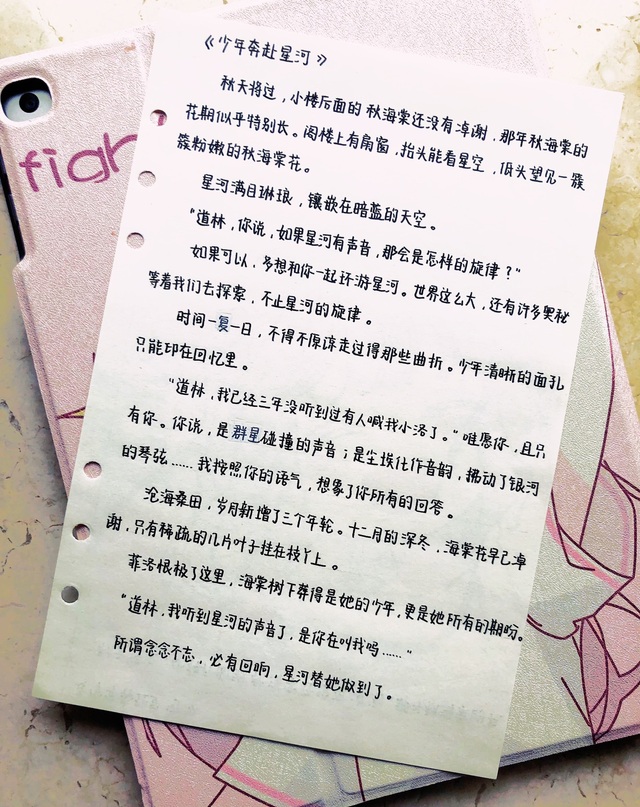 《少年奔赴星河》
秋天将过，小楼后面的秋海棠还没有凋谢，那年秋海棠的
花期似乎特别长。阁楼上有扇窗，抬头能看星空，低头望见一簇
簇粉嫩的秋海棠花。
星河满目琳琅，镶嵌在暗蓝的天空。
“道林，你说，如果星河有声音，那会是怎样的旋律？”
如果可以，多想和你一起环游星河。世界这么大，还有许多奥秘
等着我们去探索，不止星河的旋律。
时间一复一日，不得不原谅走过得那些曲折。少年清晰的面孔
只能印在回忆里。
“道林，我已经三年没听到过有人喊我小洛了。”唯愿你，且只
有你。你说，是群星碰撞的声音；是尘埃化作音韵，拂动了银河
的琴弦……我按照你的语气，想象了你所有的回答。
沧海桑田，岁月新增了三个年轮。十二月的深冬，海棠花早已凋
谢，只有稀疏的几片叶子挂在枝丫上。
菲洛恨极了这里，海棠树下葬得是她的少年，更是她所有的期盼。
“道林，我听到星河的声音了，是你在叫我吗……”
所谓念念不忘，必有回响，星河替她做到了。
figh